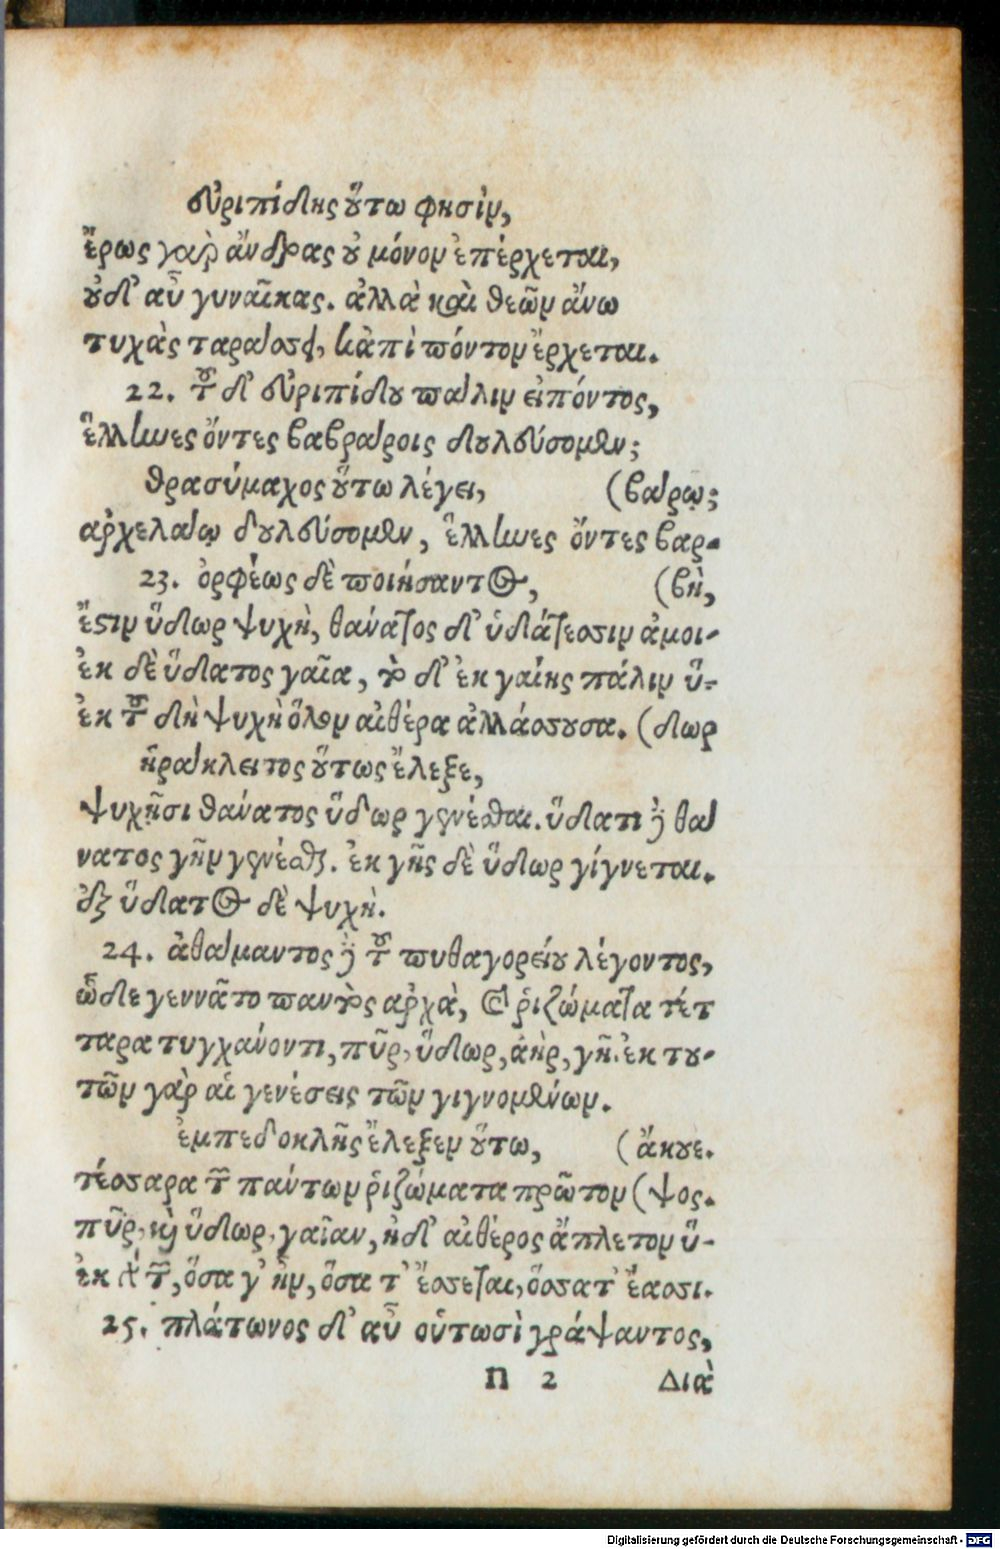 εὐριπίδης οὕτω φησὶν,
ἔρως γὰρ ἄνδρας οὐ μόνον ἐπέρχεται,
οὐδ' αὖ γυναῖκας. ἀλλὰ καὶ θεῶν ἄνω
τυχὰς ταράσσει, κἀπὶ πόντον ἔρχεται.
22. τοῦ δ' εὐριπίδου πάλιν εἰπόντος,
ἕλληνες ὄντες βαβράροις δουλεύσομεν;
θρασύμαχος οὕτω λέγει, (βάρῳ;
ἀρχελάῳ δουλεύσομεν, ἕλληνες ὄντες βαρ-
23. ὀρφέως δὲ ποιήσαντος, (βὴ,
ἔστιν ὕδωρ ψυχὴ, θάνατος δ' ὑδάτεσσιν ἀμοι-
ἐκ δὲ ὕδατος γαῖα, τὸ δ' ἐκ γαίης πάλιν ὕ-
ἐκ τοῦ δὴ ψυχὴ ὅλον αἰθέρα ἀλλάσσουσα. (δωρ
ἡράκλειτος οὕτως ἔλεξε,
ψυχῇσι θάνατος ὕδωρ γενέσθαι. ὕδατι δὲ θά
νατος γῆν γενέσθαι. ἐκ γῆς δὲ ὕδωρ γίγνεται.
ἐξ ὕδατος δὲ ψυχὴ.
24. ἀθάμαντος δὲ τοῦ πυθαγορείου λέγοντος,
ὧδε γεννᾶτο παντὸς ἀρχὰ, καὶ ῥιζώματα τέτ
ταρα τυγχάνοντι, πῦρ, ὕδωρ, ἀὴρ, γῆ. ἐκ του-
τῶν γὰρ αἱ γενέσεις τῶν γιγνομένων.
ἐμπεδοκλῆς ἔλεξεν οὕτω, (ἄκουε.
τέσσαρα τῶν πάντων ῥιζώματα πρῶτον (ψος.
πῦρ, καὶ ὕδωρ, γαῖαν, ἠδ' αἰθέρος ἄπλετον ὕ-
ἐκ γὰρ τῶν, ὅσα γ' ἦν, ὅσα τ' ἔσσεται, ὅσσα τ' ἔασσι.
25. πλάτωνος δ' αὖ οὑτωσὶ γράψαντος,
Π 2 Διὰ
Digitalisierung gefördert durch die Deutsche Forschungsgemeinschaft - DFG